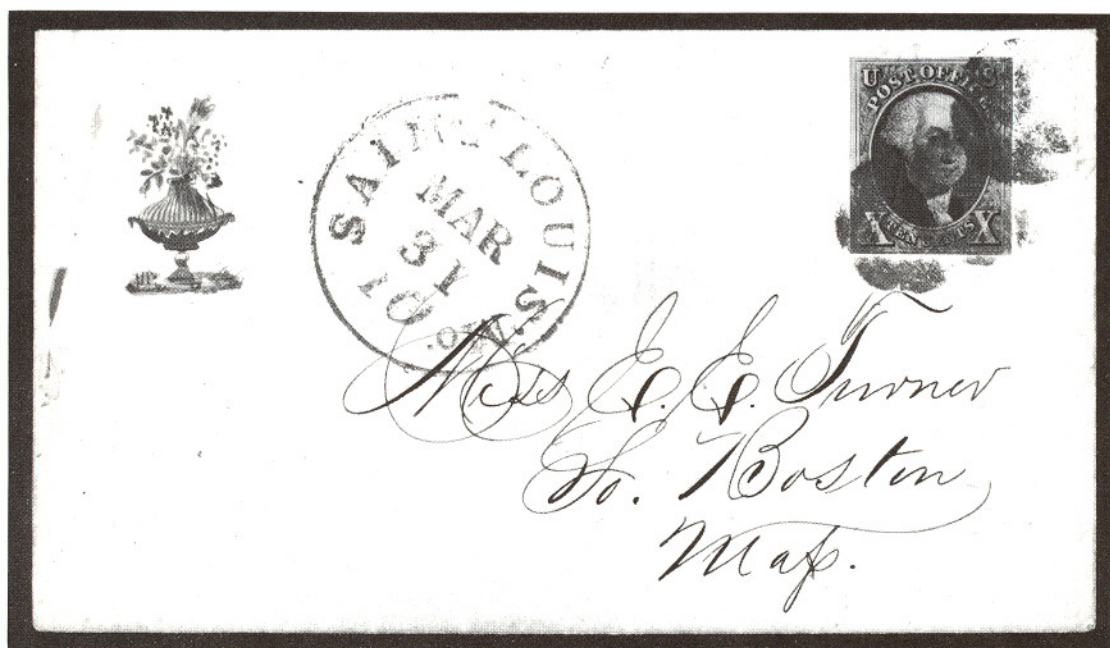 SAINT LOUIS
MAR
31
10
Mo.
U S
POST OFFICE
X TEN CENTS X
Miss E. E. Turner
So. Boston
Maſs.